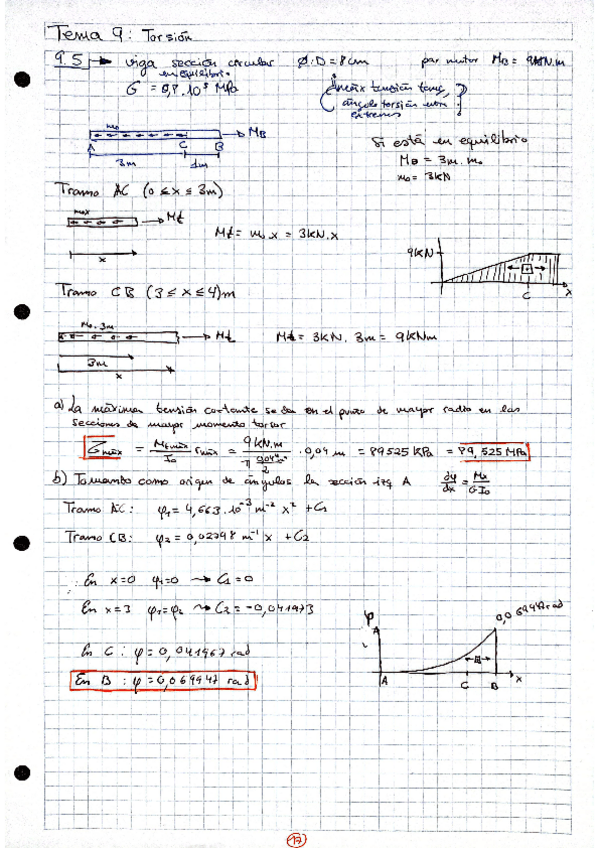 Tema 9: Torsión
9.5 → viga sección circular Ø:D=8cm par motor MB = 9kN.m
en equilibrio
G = 0,8.10⁵ MPa
¿máx tensión tang,
ángulo torsión
extremos?
m₀ MB
A C B
3m 1m
Si está en equilibrio
MB = 3m.m₀
m₀ = 3kN
Tramo AC (0 ≤ x ≤ 3m)
m₀x → Mt
Mt = m₀.x = 3kN.x
x
9kN
C x
Tramo CB (3 ≤ x ≤ 4)m
M₀.3m → Mt Mt = 3kN.3m = 9kNm
3m
x
a) La máxima tensión cortante se da en el punto de mayor radio en las
secciones de mayor momento torsor
τmáx = Mtmáx/I₀ rmáx = 9kN.m/(π 0,04⁴/2) . 0,04 m = 89525 kPa = 89,525 MPa
b) Tomando como origen de ángulos la sección izq A dφ/dx = Mx/GI₀
Tramo AC: φ₁ = 4,663.10⁻³ m⁻² x² + C₁
Tramo CB: φ₂ = 0,02798 m⁻¹ x + C₂
En x=0 φ₁=0 → C₁=0
En x=3 φ₁=φ₂ → C₂ = -0,041973
φ
0,069947 rad
A
En C: φ = 0,041967 rad
En B: φ = 0,069947 rad
A C B x
17